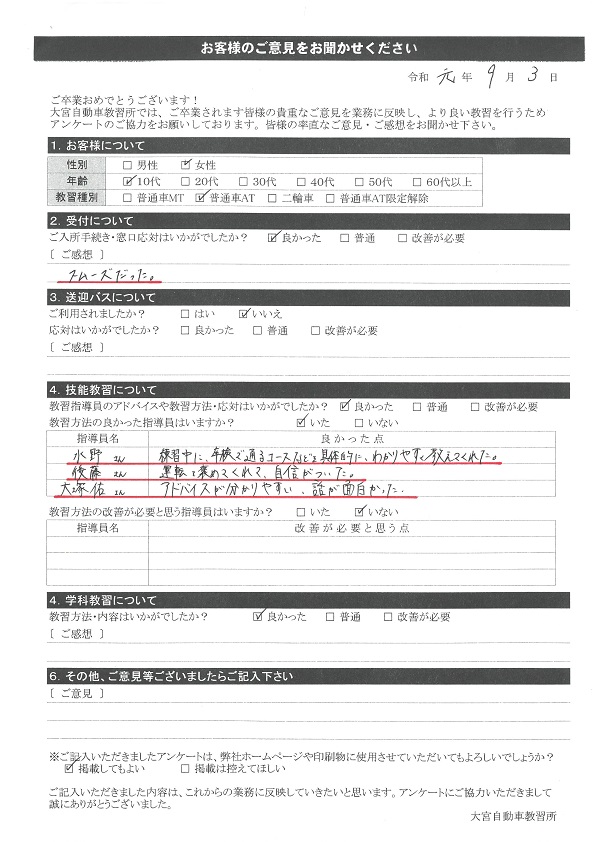 お客様のご意見をお聞かせください
令和 元 年 9 月 3 日
ご卒業おめでとうございます！
大宮自動車教習所では、ご卒業されます皆様の貴重なご意見を業務に反映し、より良い教習を行うため
アンケートのご協力をお願いしております。皆様の率直なご意見・ご感想をお聞かせ下さい。
1. お客様について
性別 □ 男性 ☑ 女性
年齢 ☑ 10代 □ 20代 □ 30代 □ 40代 □ 50代 □ 60代以上
教習種別 □ 普通車MT ☑ 普通車AT □ 二輪車 □ 普通車AT限定解除
2. 受付について
ご入所手続き・窓口応対はいかがでしたか？ ☑ 良かった □ 普通 □ 改善が必要
[ ご感想 ]
スムーズだった。
3. 送迎バスについて
ご利用されましたか？ □ はい ☑ いいえ
応対はいかがでしたか？ □ 良かった □ 普通 □ 改善が必要
[ ご感想 ]
4. 技能教習について
教習指導員のアドバイスや教習方法・応対はいかがでしたか？ ☑ 良かった □ 普通 □ 改善が必要
教習方法の良かった指導員はいますか？ ☑ いた □ いない
指導員名 良かった点
水野 さん 練習中に、本検で通るコースなどを具体的に、わかりやすく教えてくれた。
後藤 さん 運転を褒めてくれて、自信がついた。
大塚佑 さん アドバイスが分かりやすい、話が面白かった。
教習方法の改善が必要と思う指導員はいますか？ □ いた ☑ いない
指導員名 改善が必要と思う点
4. 学科教習について
教習方法・内容はいかがでしたか？ ☑ 良かった □ 普通 □ 改善が必要
[ ご感想 ]
6. その他、ご意見等ございましたらご記入下さい
[ ご意見 ]
※ご記入いただきましたアンケートは、弊社ホームページや印刷物に使用させていただいてもよろしいでしょうか？
☑ 掲載してもよい □ 掲載は控えてほしい
ご記入いただきました内容は、これからの業務に反映していきたいと思います。アンケートにご協力いただきまして
誠にありがとうございました。
大宮自動車教習所